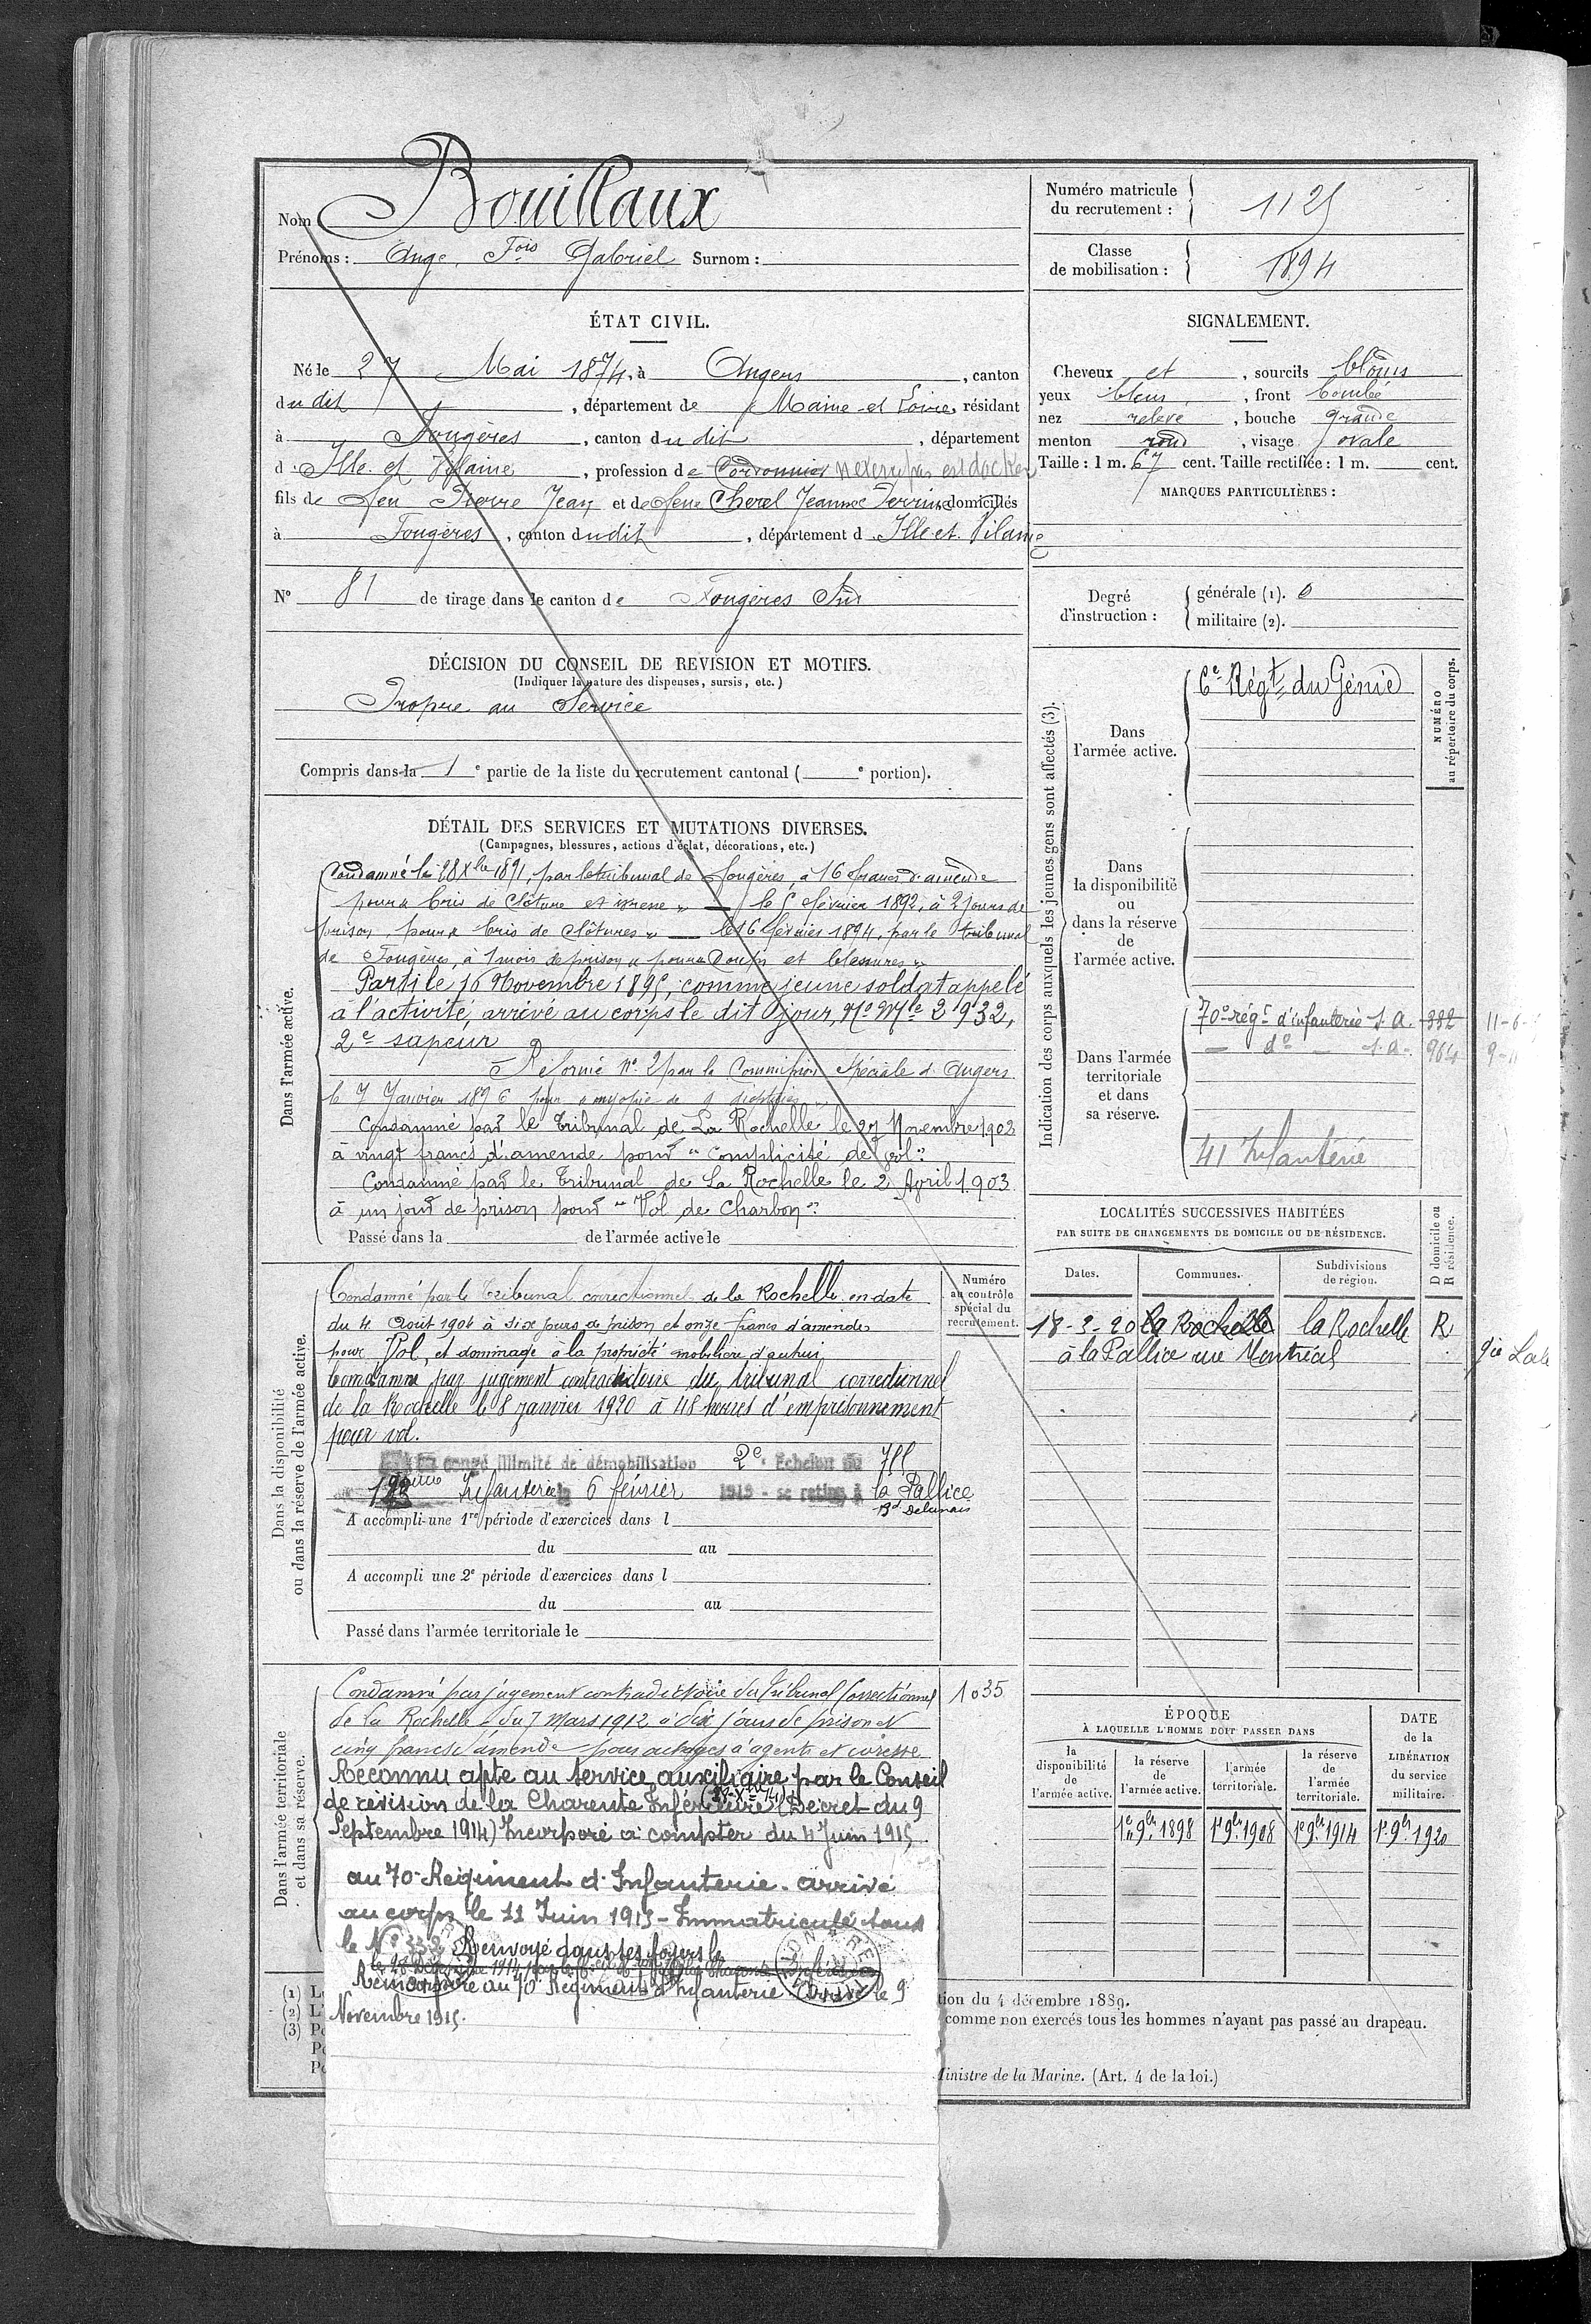 Nom Bouillaux
Prénoms : Ange Fois Gabriel Surnom :
Numéro matricule du recrutement : 1125
Classe de mobilisation : 1894
ÉTAT CIVIL.
Né le 27 Mai 1874, à Angers, canton
du dit, département de Maine-et-Loire, résidant
à Fougères, canton du dit, département
d Ille et Vilaine, profession de Cordonnier n'exerce pas est docker
fils de feu Pierre Jean et de feue Cherel Jeanne Perrine domiciliés
à Fougères, canton du dit, département d Ille et Vilaine
N° 81 de tirage dans le canton de Fougères Sud
SIGNALEMENT.
Cheveux et, sourcils blonds
yeux bleus, front bombé
nez relevé, bouche grande
menton rond, visage ovale
Taille : 1 m. 67 cent. Taille rectifiée : 1 m. cent.
MARQUES PARTICULIÈRES :
Degré d'instruction : générale (1). 0
militaire (2).
DÉCISION DU CONSEIL DE REVISION ET MOTIFS.
(Indiquer la nature des dispenses, sursis, etc.)
Propre au Service
Compris dans la 1e partie de la liste du recrutement cantonal ( e portion).
DÉTAIL DES SERVICES ET MUTATIONS DIVERSES.
(Campagnes, blessures, actions d'éclat, décorations, etc.)
Dans l'armée active.
Condamné le 28 Xbre 1891, par le tribunal de Fougères, à 16 francs d'amende
pour « bris de Clôture et ivresse » — le 5 février 1892, à 2 jours de
prison, pour « bris de Clôtures » — le 16 février 1894, par le tribunal
de Fougères, à 1 mois de prison « pour Coups et blessures »
Parti le 16 Novembre 1895, comme jeune soldat appelé
à l'activité, arrivé au corps le dit jour, No Mle 2932,
2e sapeur
Réformé No 2 par la Commission Spéciale d'Angers
le 7 Janvier 1896 pour « myopie de 9 dioptries »
Condamné par le Tribunal de La Rochelle le 27 Novembre 1902
à vingt francs d'amende pour « complicité de vol »
Condamné par le Tribunal de La Rochelle le 2 Avril 1903
à un jour de prison pour « Vol de Charbon »
Passé dans la de l'armée active le
Dans la disponibilité
ou dans la réserve de l'armée active.
Numéro au contrôle spécial du recrutement.
Condamné par le Tribunal correctionnel de la Rochelle en date
du 4 Août 1904 à six jours de prison et onze francs d'amende
pour Vol, et dommage à la propriété mobilière d'autrui
Condamné par jugement contradictoire du tribunal correctionnel
de la Rochelle le 8 janvier 1920 à 48 heures d'emprisonnement
pour vol.
congé illimité de démobilisation 2e Echelon du
Infanterie le 6 février 1919 - se retire à la Pallice
Bd Delmas
A accompli une 1re période d'exercices dans l
du au
A accompli une 2e période d'exercices dans l
du au
Passé dans l'armée territoriale le
Dans l'armée territoriale
et dans sa réserve.
Condamné par jugement contradictoire du Tribunal Correctionnel 1035
de La Rochelle du 7 Mars 1912 à dix jours de prison et
cinq francs d'amende pour outrages à agents et ivresse
Reconnu apte au service auxiliaire par le Conseil
de révision de la Charente Inférieure (Décret du 9
Septembre 1914) Incorporé à compter du 4 Juin 1915
au 70e Régiment d'Infanterie. arrivé
au corps le 11 Juin 1915 - Immatriculé sous
le No 332 Renvoyé dans ses foyers le
Réincorporé au 70e Régiment d'Infanterie Arrivé le 9
Novembre 1915.
Indication des corps auxquels les jeunes gens sont affectés (3).
NUMÉRO au répertoire du corps.
Dans l'armée active.
6e Régt du Génie
Dans la disponibilité ou dans la réserve de l'armée active.
Dans l'armée territoriale et dans sa réserve.
70e régt d'infanterie S.A. 332
— do — S.A. 964
41 Infanterie
LOCALITÉS SUCCESSIVES HABITÉES
PAR SUITE DE CHANGEMENTS DE DOMICILE OU DE RÉSIDENCE.
D domicile ou R résidence.
Dates. Communes. Subdivisions de région.
18-3-20 La Rochelle la Rochelle R
à la Pallice rue Montréal
ÉPOQUE
À LAQUELLE L'HOMME DOIT PASSER DANS
la disponibilité de l'armée active.
la réserve de l'armée active.
l'armée territoriale.
la réserve de l'armée territoriale.
DATE de la LIBÉRATION du service militaire.
1er 9bre 1898 1er 9bre 1908 1er 9bre 1914 1er 9bre 1920
(1) L
(2) L
(3) Po
Po
Po
tion du 4 décembre 1889.
comme non exercés tous les hommes n'ayant pas passé au drapeau.
Ministre de la Marine. (Art. 4 de la loi.)